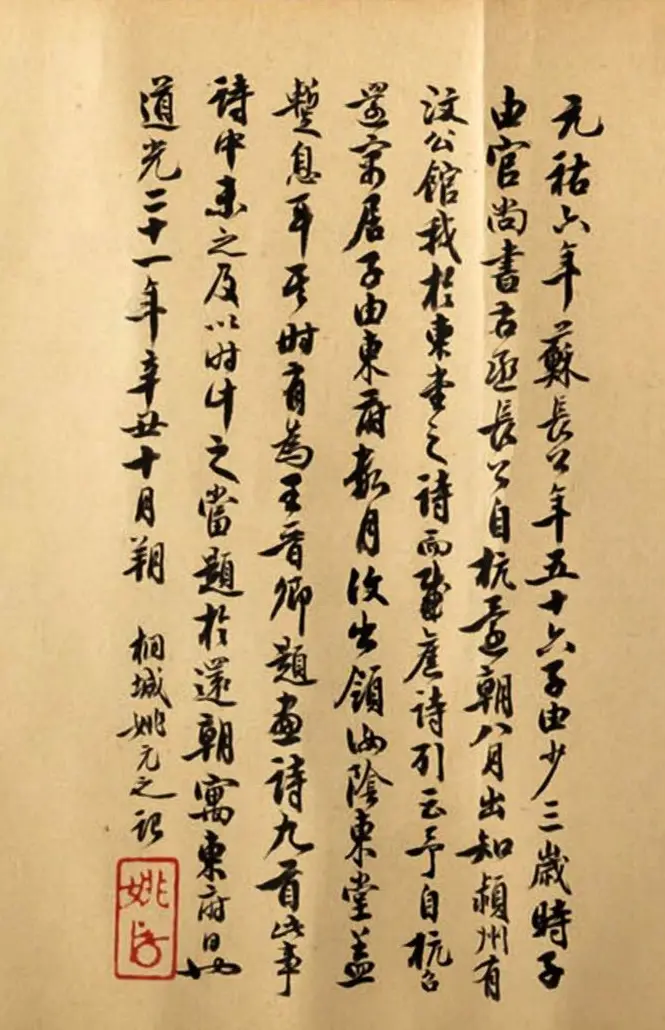 元祐六年蘇長公年五十六子由少三歲時子
由官尚書右丞長公自杭還朝八月出知潁州有
汶公館我於東堂之詩而感舊詩引云予自杭召
還寓居子由東府數月復出領汝陰東堂蓋
暫息耳其時有為王晉卿題畫詩九首此事
詩中未之及以時計之當題於還朝寓東府日也
道光二十一年辛丑十月朔 桐城姚元之記
姚